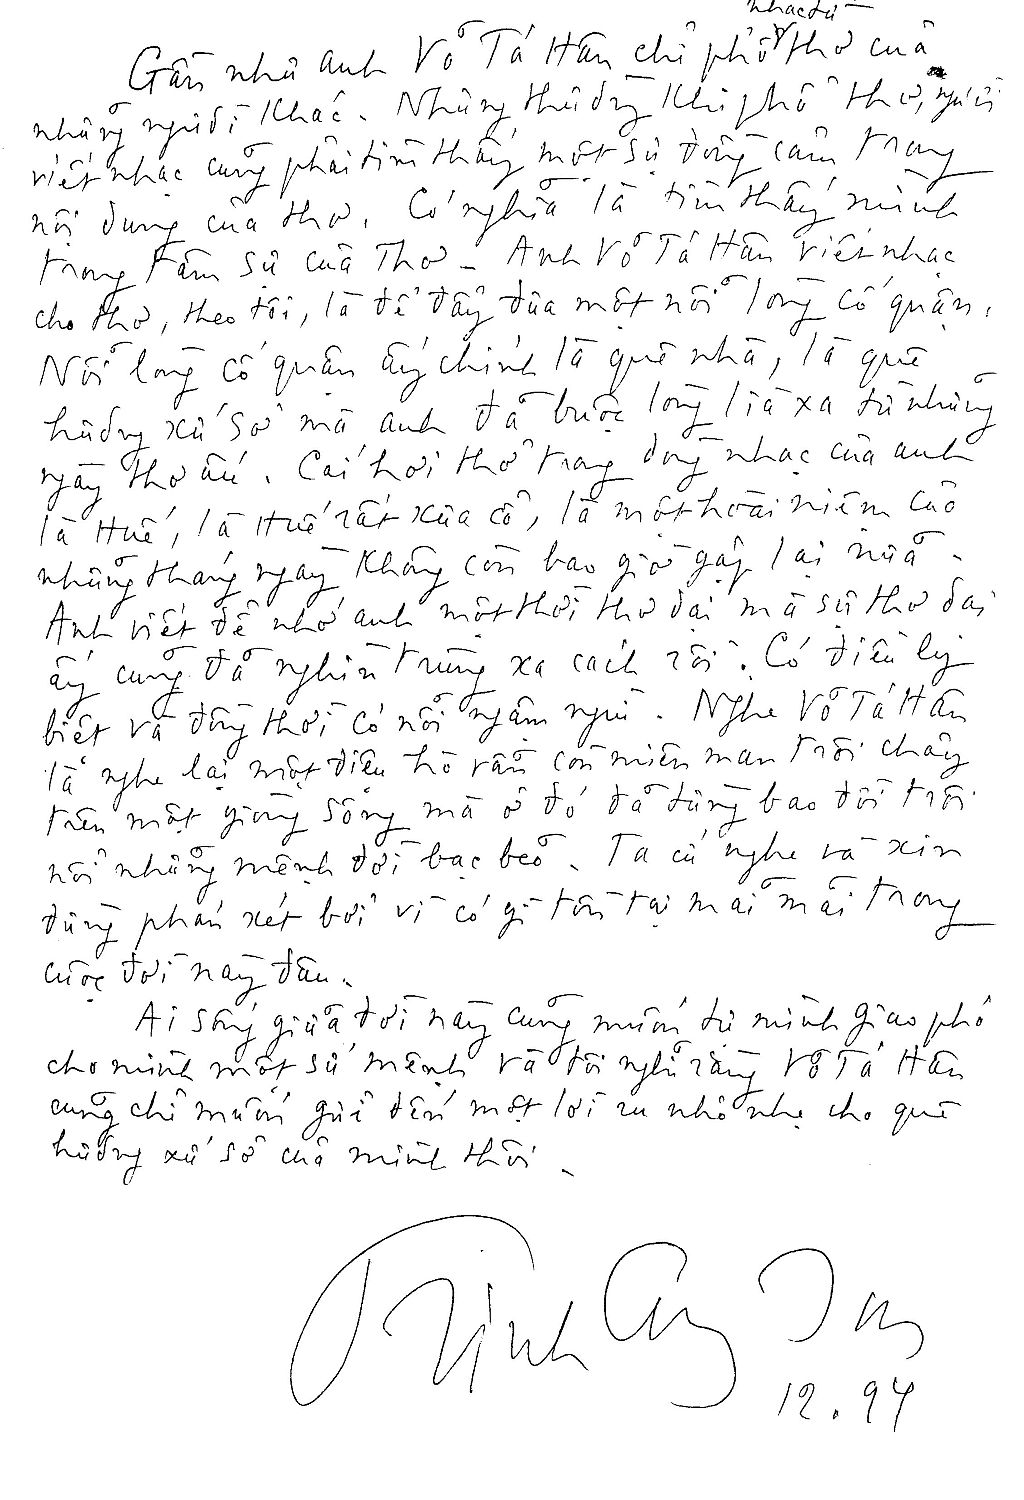 nhạc từ
Gần như anh Võ Tá Hân chỉ phổ thơ của
những người khác. Nhưng thường khi phổ thơ, người
viết nhạc cũng phải tìm thấy một sự đồng cảm trong
nội dung của thơ. Có nghĩa là tìm thấy mình
trong tâm sự của Thơ - Anh Võ Tá Hân viết nhạc
cho thơ, theo tôi, là để đẩy đưa một nỗi lòng cố quận.
Nỗi lòng cố quận ấy chính là quê nhà, là quê
hương xứ sở mà anh đã buộc lòng lìa xa từ những
ngày thơ ấu. Cái hơi thở trong dòng nhạc của anh
là Huế, là Huế rất xưa cũ, là một hoài niệm của
những tháng ngày không còn bao giờ gặp lại nữa.
Anh viết để nhớ anh một thời thơ dại mà sự thơ dại
ấy cũng đã nghìn trùng xa cách rồi. Có điều ly
biệt và đồng thời có nỗi ngậm ngùi. Nghe Võ Tá Hân
là nghe lại một điệu hò vẫn còn miên man trôi chảy
trên một giòng sông mà ở đó đã từng bao đời trôi
nổi những mệnh đời bạc bẽo. Ta cứ nghe và xin
đừng phán xét bởi vì có gì tồn tại mãi mãi trong
cuộc đời này đâu.
Ai sống giữa đời này cũng muốn tự mình giao phó
cho mình một sứ mệnh và tôi nghĩ rằng Võ Tá Hân
cũng chỉ muốn gửi đến một lời ru nhỏ nhẹ cho quê
hương xứ sở của mình thôi.
Trịnh Công Sơn
12.94